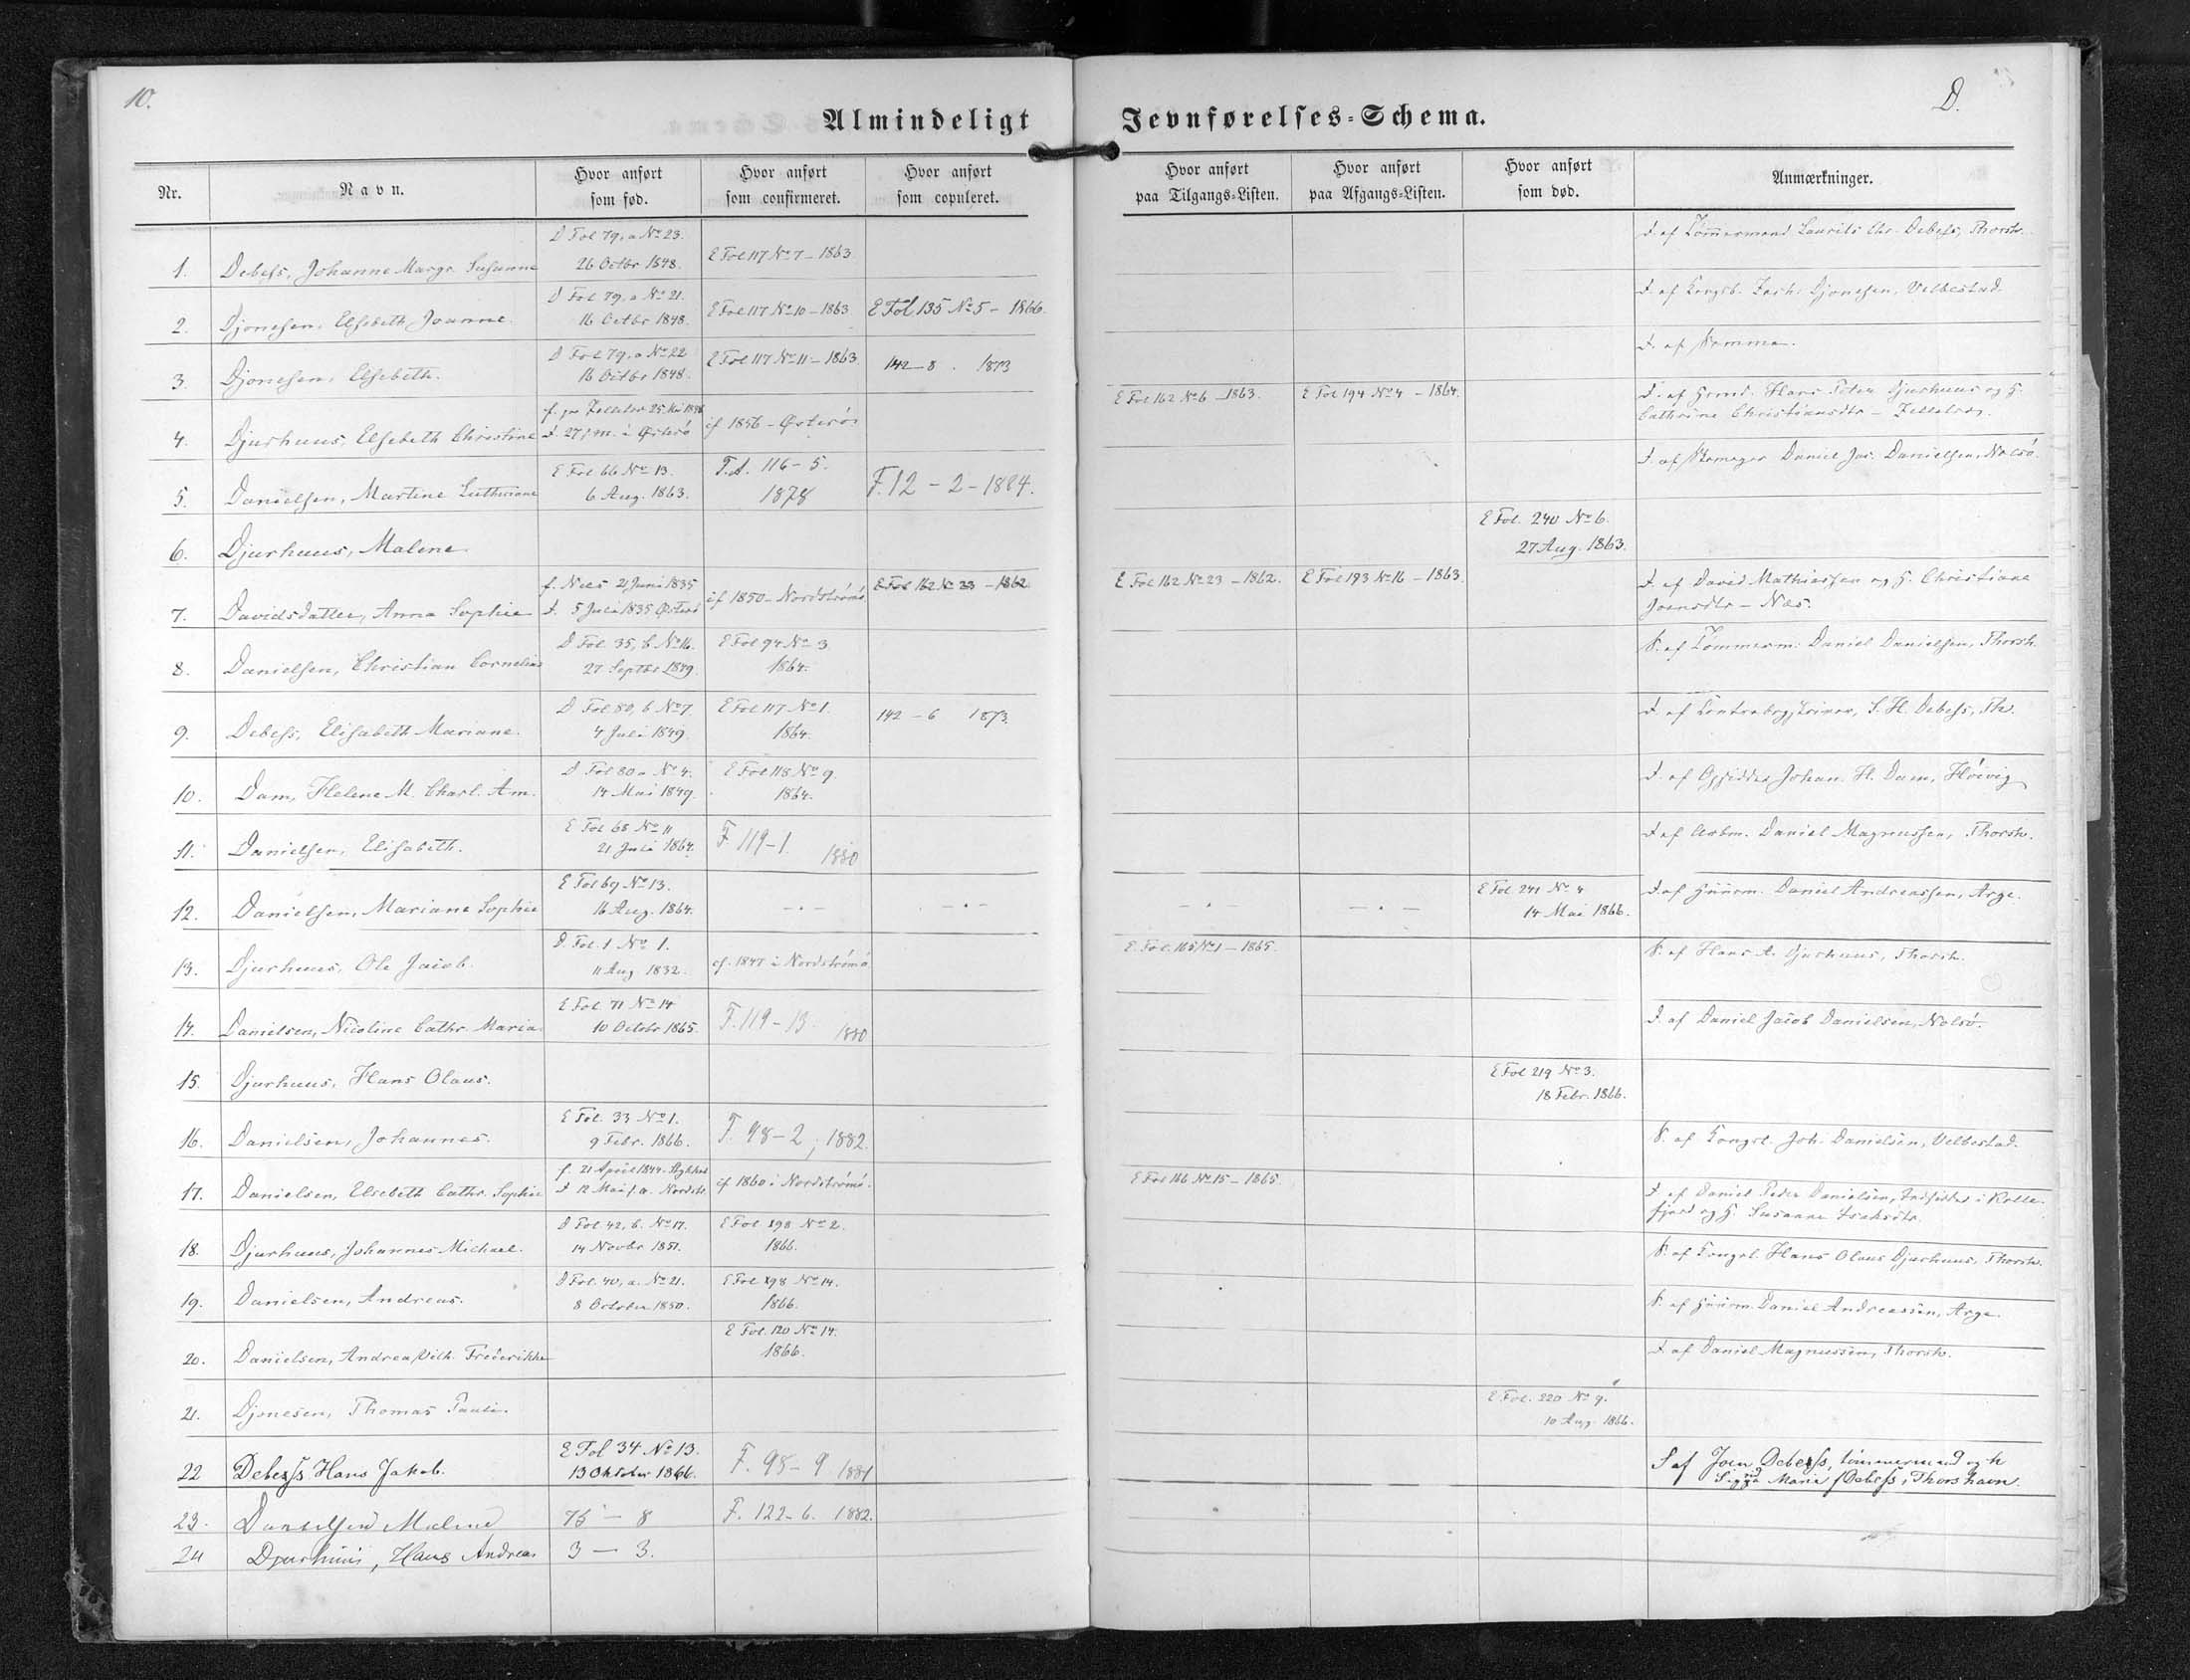 10.
D.
Almindeligt Jevnførelses-Schema.
Nr. Navn. Hvor anført som fød. Hvor anført som confirmeret. Hvor anført som copuleret. Hvor anført paa Tilgangs-Listen. Hvor anført paa Afgangs-Listen. Hvor anført som død. Anmærkninger.
1. Debess, Johanne Margr. Susanne D Fol 79, a No 23. 26 Octbr 1848. E Fol 117 No 7 - 1863 D. af Tømmermand Laurits Chr. Debess, Thorsh.
2. Djonesen, Elsebeth Joanne D Fol 79, a No 21. 16 Octbr 1848. E Fol 117 No 10 - 1863 E Fol 135 No 5 - 1866. D. af Kongsb. Zach. Djonesen, Velbestad
3. Djonesen, Elsebeth. D Fol 79, a No 22 16 Octbr 1848. E Fol 117 No 11 - 1863. 142 - 8 . 1873 D. af Samme.
4. Djurhuus, Elsebeth Christine D. 27 s. m. i Østerö cf 1856 - Österö E Fol 162 No 6 - 1863. E Fol 194 No 4 - 1864. D. af Hans Peter Djurhuus og H. Cathrine Christiansdtr -
5. Danielsen, Martine E Fol 66 No 13. 6 Aug. 1863. 116 - 5. 1878 F. 12 - 2 - 1884. D. af Daniel Jac. Danielsen, Nolsö.
6. Djurhuus, Malene E Fol. 240 No 6. 27 Aug. 1863.
7. Davidsdatter, Anna Sophie f. Næs 21 Juni 1835 D. 5 Juli 1835 Österö cf 1850 - Nordströmö E Fol 162 No 23 - 1862 E Fol 162 No 23 - 1862. E Fol 193 No 16 - 1863. D. af David Mathiassen og H. Christiane Joensdtr - Næs.
8. Danielsen, Christian Cornelius D Fol 35, b No 16. 27 Septbr 1849. E Fol 94 No 3 1864. S. af Tömmerm. Daniel Danielsen, Thorsh.
9. Debess, Elisabeth Mariane. D Fol 80, b No 7. 4 Juli 1849. E Fol 117 No 1. 1864. 142 - 6 1873. D. af S. H. Debess, Th.
10. Dam, Helene M. Charl. Am. D Fol 80 a No 4. 14 Mai 1849. E Fol 118 No 9. 1864. D. af Opsidder Johan H. Dam, Höivig
11. Danielsen, Elisabeth. E Fol 68 No 11 21 Juli 1864. F. 119 - 1. 1880 D. af Arbm. Daniel Magnussen, Thorsh.
12. Danielsen, Mariane Sophie E Fol 69 No 13. 16 Aug. 1864. - . - - . - - . - - . - E Fol. 241 No 4 14 Mai 1866. D. af Huusm. Daniel Andreassen, Arge.
13. Djurhuus, Ole Jacob. D. Fol. 1 No 1. 11 Aug 1832. cf. 1847 i Nordströmö E. Fol. 165 No 1 - 1865. S. af Hans A. Djurhuus, Thorsh.
14. Danielsen, Nicoline Cathr. Maria E Fol. 71 No 14 10 Octobr 1865. F. 119 - 13 1880 D. af Daniel Jacob Danielsen, Nolsö.
15. Djurhuus, Hans Olaus. E Fol 219 No 3. 18 Febr. 1866.
16. Danielsen, Johannes. E Fol. 33 No 1. 9 Febr. 1866. F. 98 - 2, 1882. S. af Joh. Danielsen, Velbestad.
17. Danielsen, Elsebeth Cathr. Sophie f. 21 April 1844. D 12 Mai s. a. Nordstr. cf 1860 i Nordströmö. E Fol 166 No 15 - 1865. D. af Daniel Peder Danielsen, Indsidder i Kollefjord og H. Susanne Isaksdtr.
18. Djurhuus, Johannes Michael. D Fol 42, b. No 17. 14 Novbr 1851. E Fol 198 No 2. 1866. S. af Hans Olaus Djurhuus, Thorsh.
19. Danielsen, Andreas. D Fol. 40, a. No 21. 8 October 1850. E Fol 198 No 14. 1866. S. af Huusm. Daniel Andreassen, Arge.
20. Danielsen, Andrea Vilh. Frederikke E Fol. 120 No 14. 1866. D. af Daniel Magnussen, Thorsh.
21. Djonesen, Thomas Pauli. E Fol. 220 No 9. 10 Aug. 1866.
22 Debess Hans Jakob. E Fol 34 No 13. 13 Oktober 1866. F. 98 - 9 1881 S af Joen Debess, tömmermand og h Sigga Marie f Debess, Thorshavn.
23. Danielsen Malene 75 - 8 F. 122 - 6. 1882.
24 Djurhuus, Hans Andreas 3 - 3.